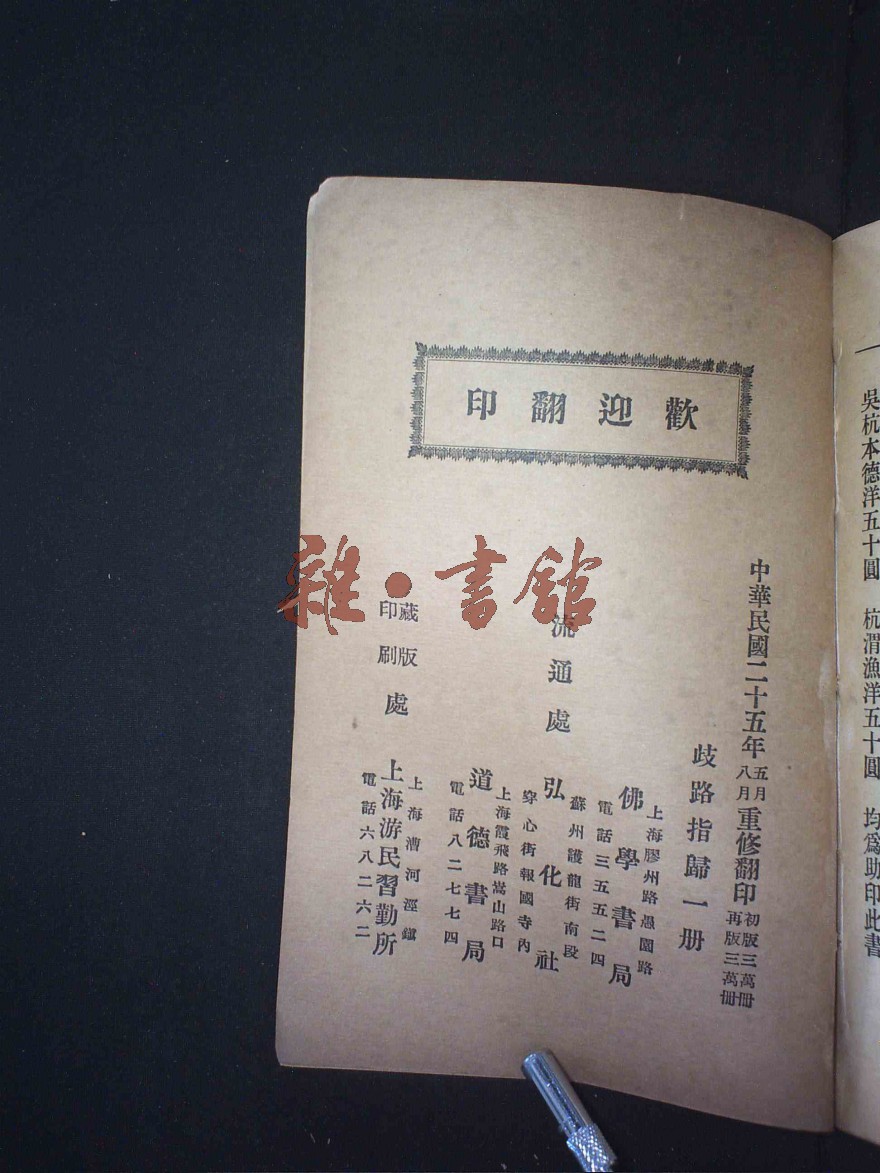 吳杭本德洋五十圓　杭渭漁洋五十圓　均爲助印此書
歡迎翻印
中華民國二十五年五月八月重修翻印初版三萬冊再版三萬冊
歧路指歸一册
流通處
上海膠州路愚園路
佛學書局
電話三五五二四
蘇州護龍街南段
弘化社
穿心街報國寺內
上海霞飛路嵩山路口
道德書局
電話八二七七四
藏版
印刷處
上海漕河涇鎮
上海游民習勤所
電話六八二六二
雜·書館